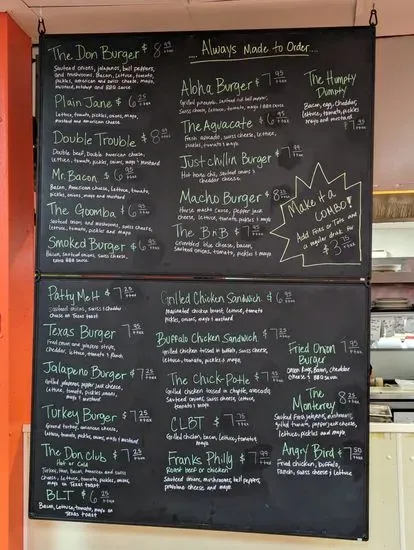 .... Always Made to Order ....
The Don Burger $
Sauteed onions, jalapenos, bell peppers,
and mushrooms, Bacon, lettuce, tomato,
pickles, american and swiss cheese, mayo,
mustard, and BBQ sauce.
Plain Jane $ 6 25
Lettuce, tomato, pickles, onions, mayo,
mustard and American cheese
Double Trouble $ 8
Double beef, Double American cheese,
lettuce, tomato, pickles, onions, mayo & mustard
Mr. Bacon $ 6 95
Bacon, American cheese, lettuce, tomato,
pickles, onions, mayo and mustard
The Goomba $ 6 95
Sauteed onions and mushrooms, swiss cheese,
lettuce, tomato, pickles and mayo.
Smoked Burger $ 6 95
Bacon, sauteed onions, swiss cheese,
extra BBQ sauce
Aloha Burger $ 7 95
Grilled pineapple, sauteed red bell peppers,
Swiss cheese, lettuce, tomato, mayo & BBQ sauce
The Aguacate $ 6 95
Fresh avocado, swiss cheese, lettuce,
pickles, tomato & mayo
Just chillin Burger $ 7
Hot honey chili, sauteed onions &
cheddar cheese
Macho Burger $ 8 25
House macho sauce, pepper jack
cheese, lettuce, tomato, pickles & mayo
The BnB $ 7 95
Crumbled blue cheese, bacon,
Sauteed onions, tomato, pickles & mayo
The
Humpty
Dumpty
Bacon, egg, cheddar,
lettuce, tomato, pickles
Mayo and mustard
$ 7 95
Make it a
COMBO!
Add Fries or Tots and
a regular drink for
$ 3 75
Patty Melt $ 7 25
Sauteed onions, swiss &
cheddar cheese
on Texas Toast
Texas Burger $ 7 95
Fried onion and jalapeno strips,
cheddar, lettuce, tomato & Ranch
Jalapeno Burger $ 7 25
Grilled jalapenos, pepper jack cheese,
lettuce, tomato, pickles, onions,
mayo & mustard
Turkey Burger $ 7 25
Ground turkey, american cheese,
lettuce, tomato, pickles, onions, mayo & mustard
The Don club $ 7 25
Hot or Cold
Turkey, Ham, bacon, American and swiss
cheese, lettuce, tomato, pickles, onions,
mayo on Texas toast
BLT $ 6 25
Bacon, Lettuce, tomato, mayo
on Texas toast
Grilled Chicken Sandwich $ 6 95
Marinated chicken breast, lettuce, tomato
pickles, onions, mayo & mustard
Buffalo Chicken Sandwich $ 7 25
Grilled chicken tossed in buffalo, swiss cheese,
lettuce, tomato & mayo
The Chick-Potle $ 7
Grilled chicken tossed in chipotle, avocado,
Sauteed onions, swiss cheese, lettuce,
tomato & mayo
CLBT $ 7 75
Grilled chicken, bacon, lettuce, tomatoes
mayo
Franks Philly $ 7
Roast beef or chicken
Sauteed onion, mushrooms, bell peppers,
provolone cheese and mayo.
Fried Onion
Burger $ 7 95
Onion Rings, Bacon, cheddar
cheese & BBQ sauce
The
Monterrey $ 8 25
Sauteed Fresh jalapenos, mushrooms,
grilled tomato, pepper jack cheese,
lettuce, pickles and mayo
Angry Bird $ 7 50
Fried chicken, buffalo,
ranch, swiss cheese & lettuce